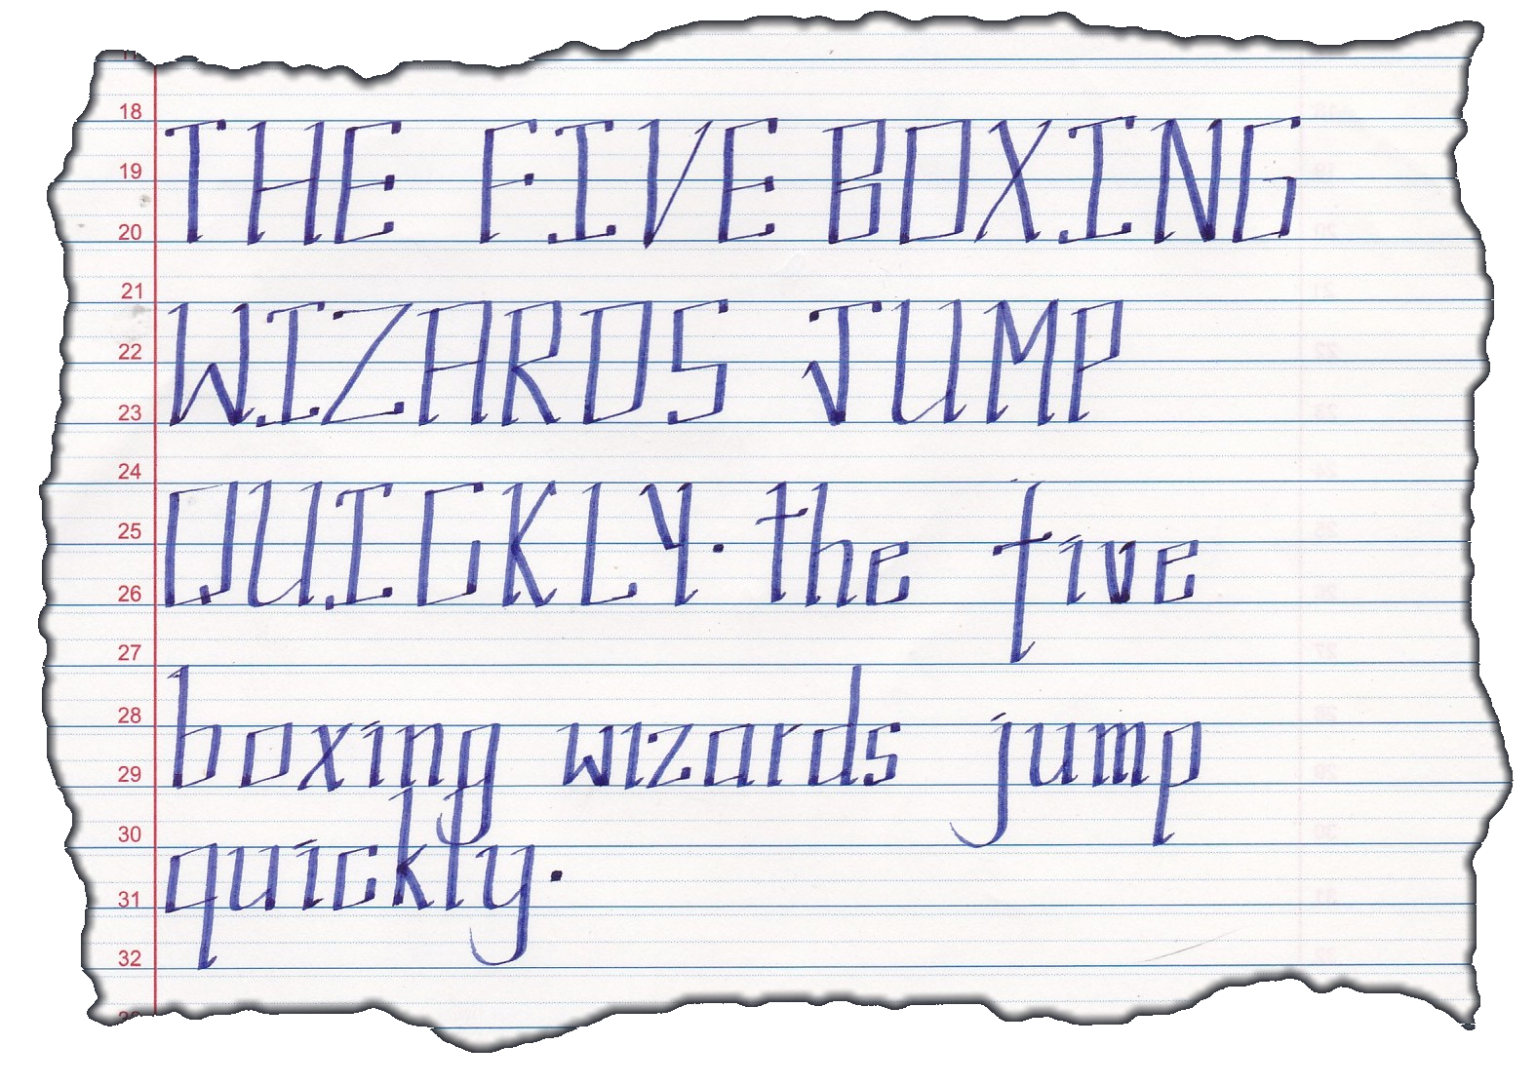 18 THE FIVE BOXING
19
20
21 WIZARDS JUMP
22
23
24 QUICKLY. the five
25
26
27 boxing wizards jump
28
29
30 quickly.
31
32